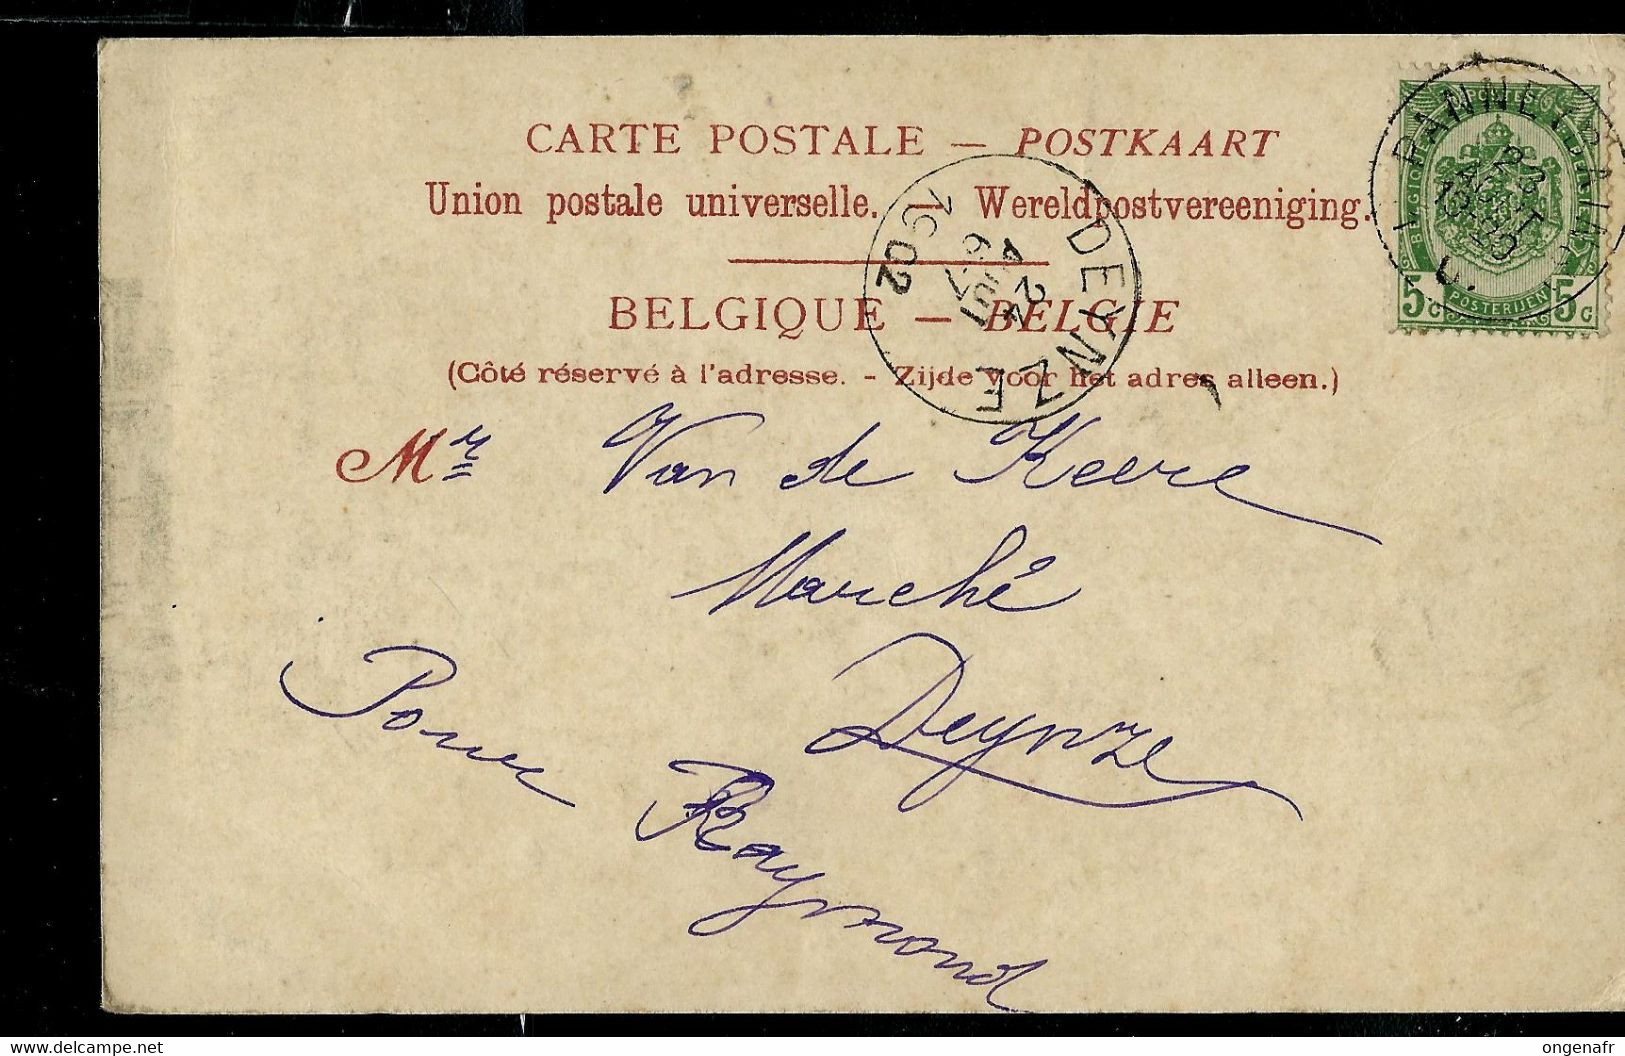 CARTE POSTALE — POSTKAART
Union postale universelle. — Wereldpostvereeniging.
BELGIQUE — BELGIE
(Côté réservé à l'adresse. - Zijde voor het adres alleen.)
Mr Van de Keere
Marché
Deynze
Pour
Raymond
DEYNZE
6-7
AOUT
1902
POSTES
BELGIQUE
5c 5c
POSTERIJEN
ongenafr